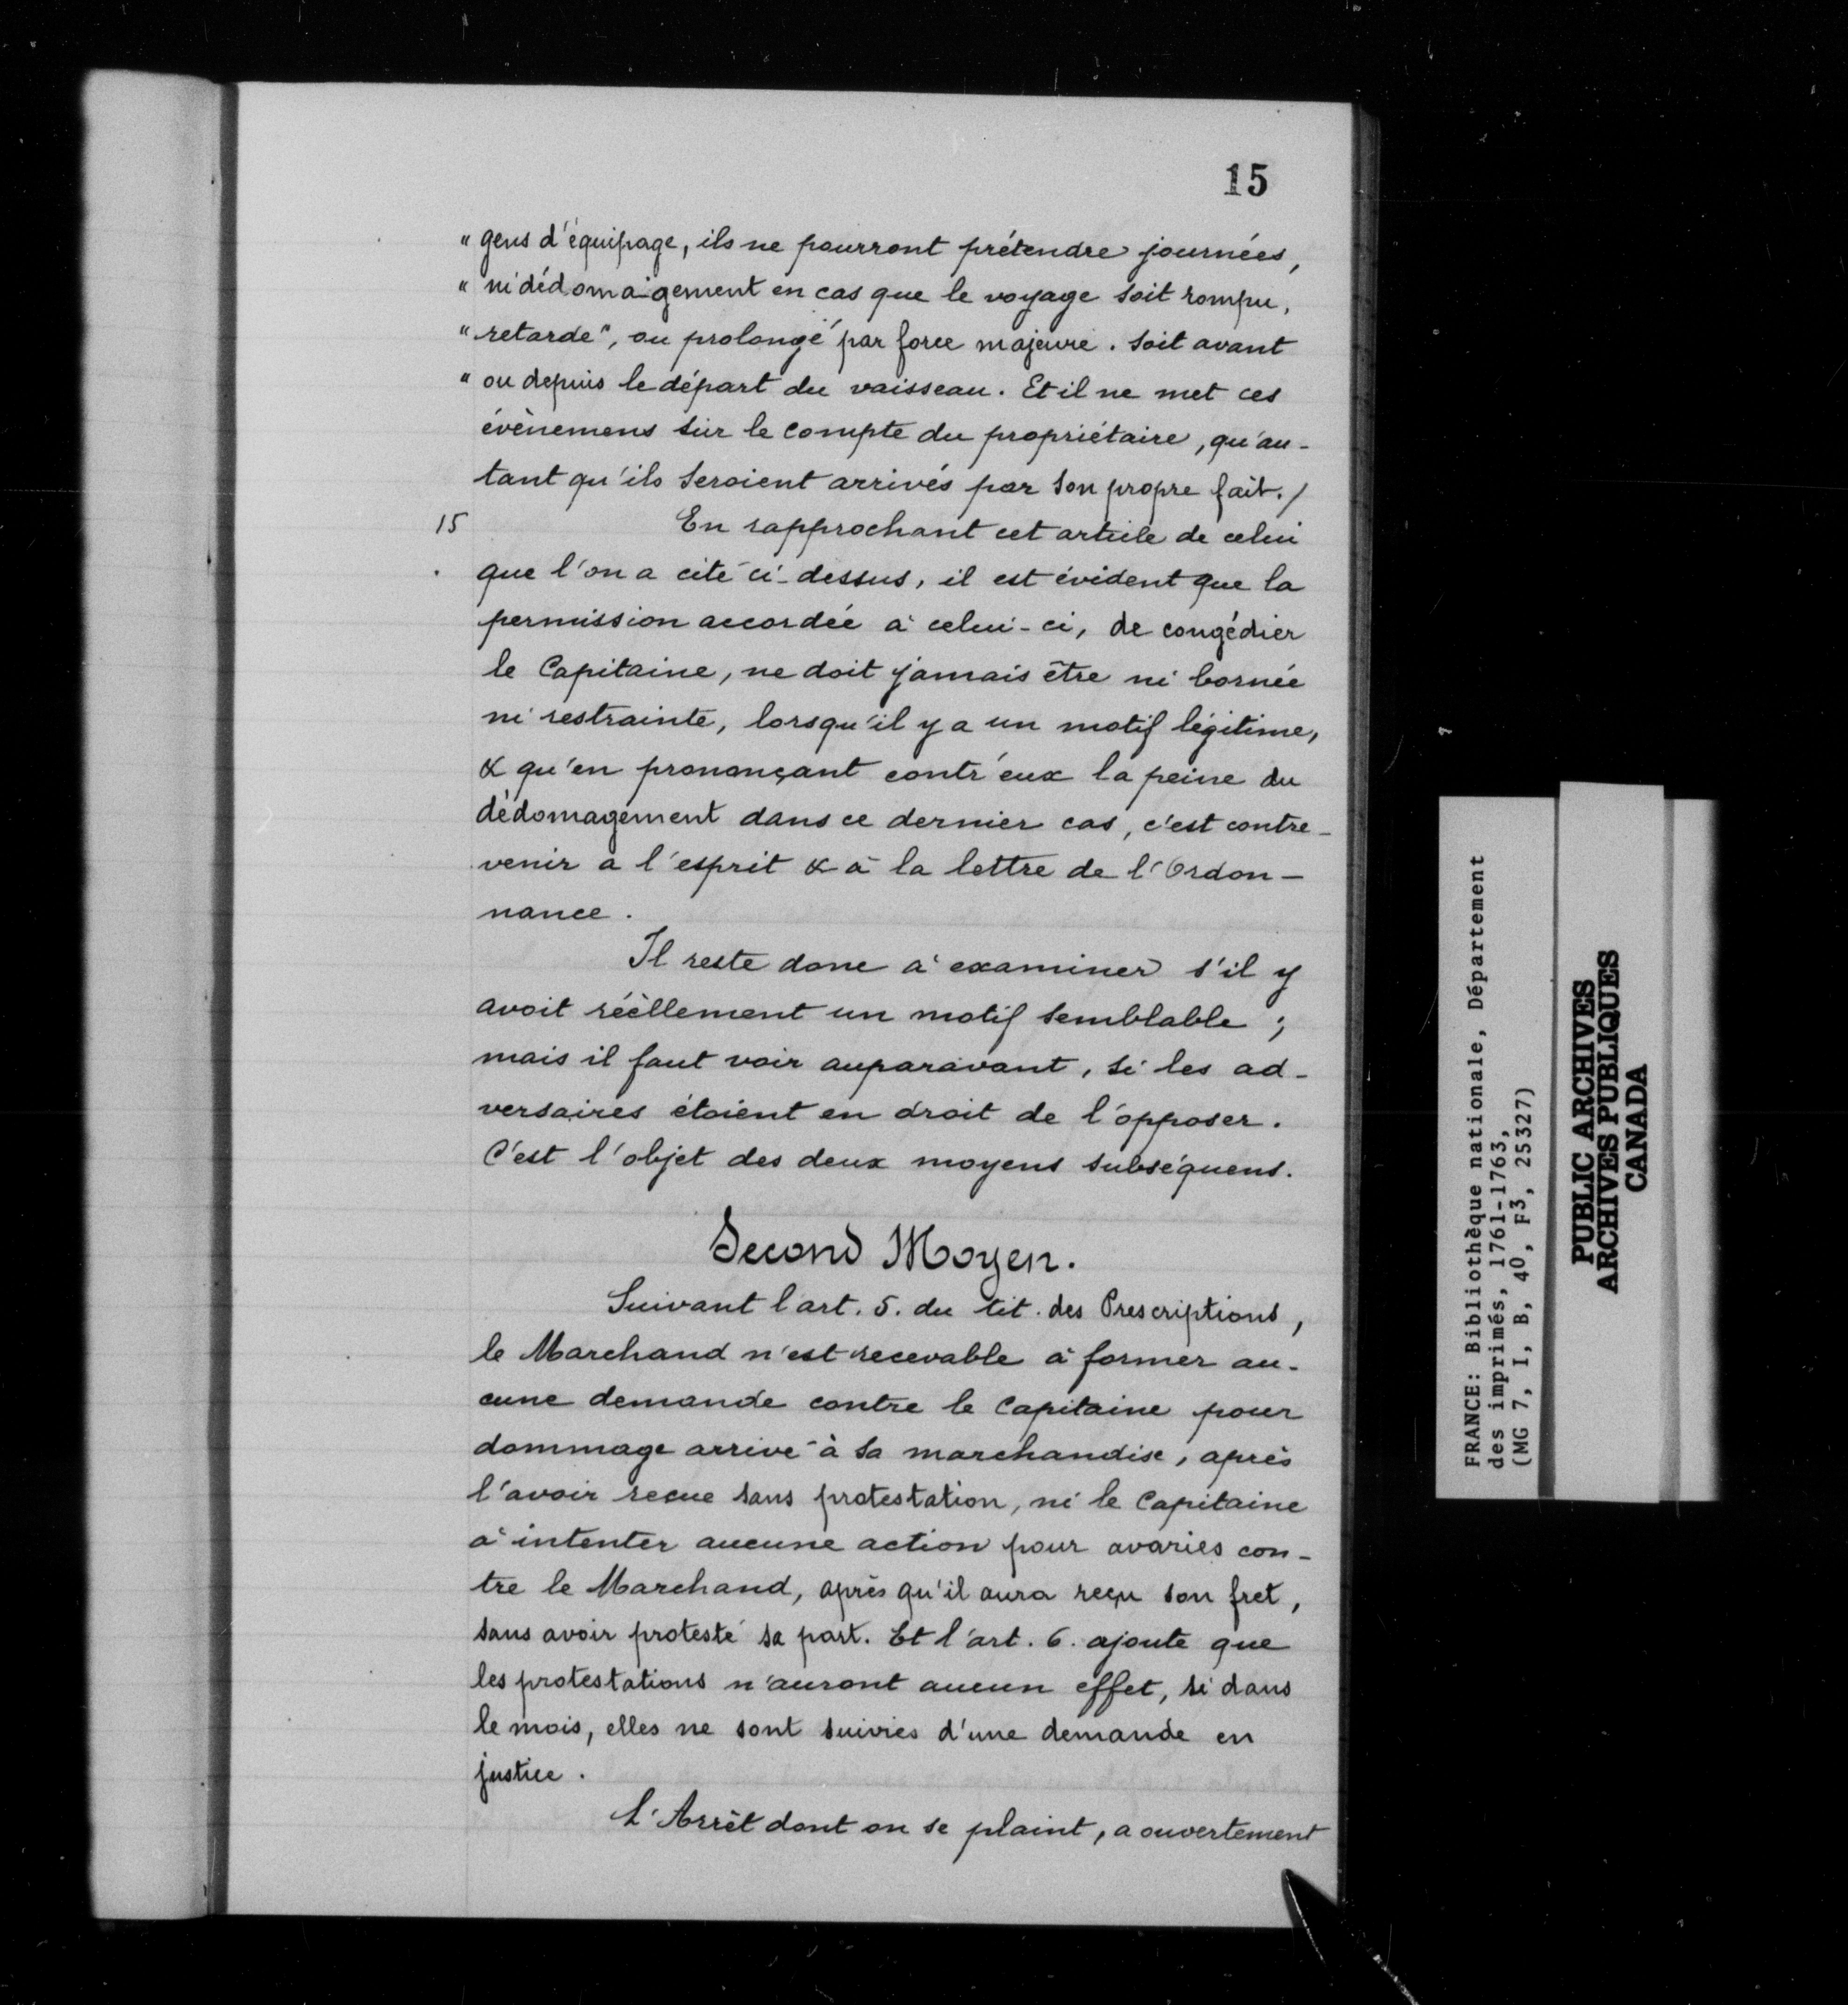 15
" gens d'équipage, ils ne pourront prétendre journées,
" ni dédomagement en cas que le voyage soit rompu,
" retardé, ou prolongé par force majeure. soit avant
" ou depuis le départ du vaisseau. Et il ne met ces
évènemens sur le compte du propriétaire, qu'au-
tant qu'ils seroient arrivés par son propre fait./
15 En rapprochant cet article de celui
que l'on a cité ci-dessus, il est évident que la
permission accordée à celui-ci, de congédier
le Capitaine, ne doit jamais être ni bornée
ni restrainte, lorsqu'il y a un motif légitime,
& qu'en prononçant contr'eux la peine du
dédomagement dans ce dernier cas, c'est contre-
venir a l'esprit & à la lettre de l'Ordon-
nance.
Il reste donc à examiner s'il y
avoit réèllement un motif semblable ;
mais il faut voir auparavant, si les ad-
versaires étoient en droit de l'opposer.
C'est l'objet des deux moyens subséquens.
Second Moyen.
Suivant l'art. 5. du tit. des Prescriptions,
le Marchand n'est recevable à former au-
cune demande contre le Capitaine pour
dommage arrivé à sa marchandise, après
l'avoir recue sans protestation, ni le Capitaine
à intenter aucune action pour avaries con-
tre le Marchand, après qu'il aura reçu son fret,
sans avoir protesté sa part. Et l'art. 6. ajoute que
les protestations n'auront aucun effet, si dans
le mois, elles ne sont suivies d'une demande en
justice.
L'Arrêt dont on se plaint, a ouvertement
FRANCE: Bibliothèque nationale, Département
des imprimés, 1761-1763,
(MG 7, I, B, 40, F3, 25327)
PUBLIC ARCHIVES
ARCHIVES PUBLIQUES
CANADA